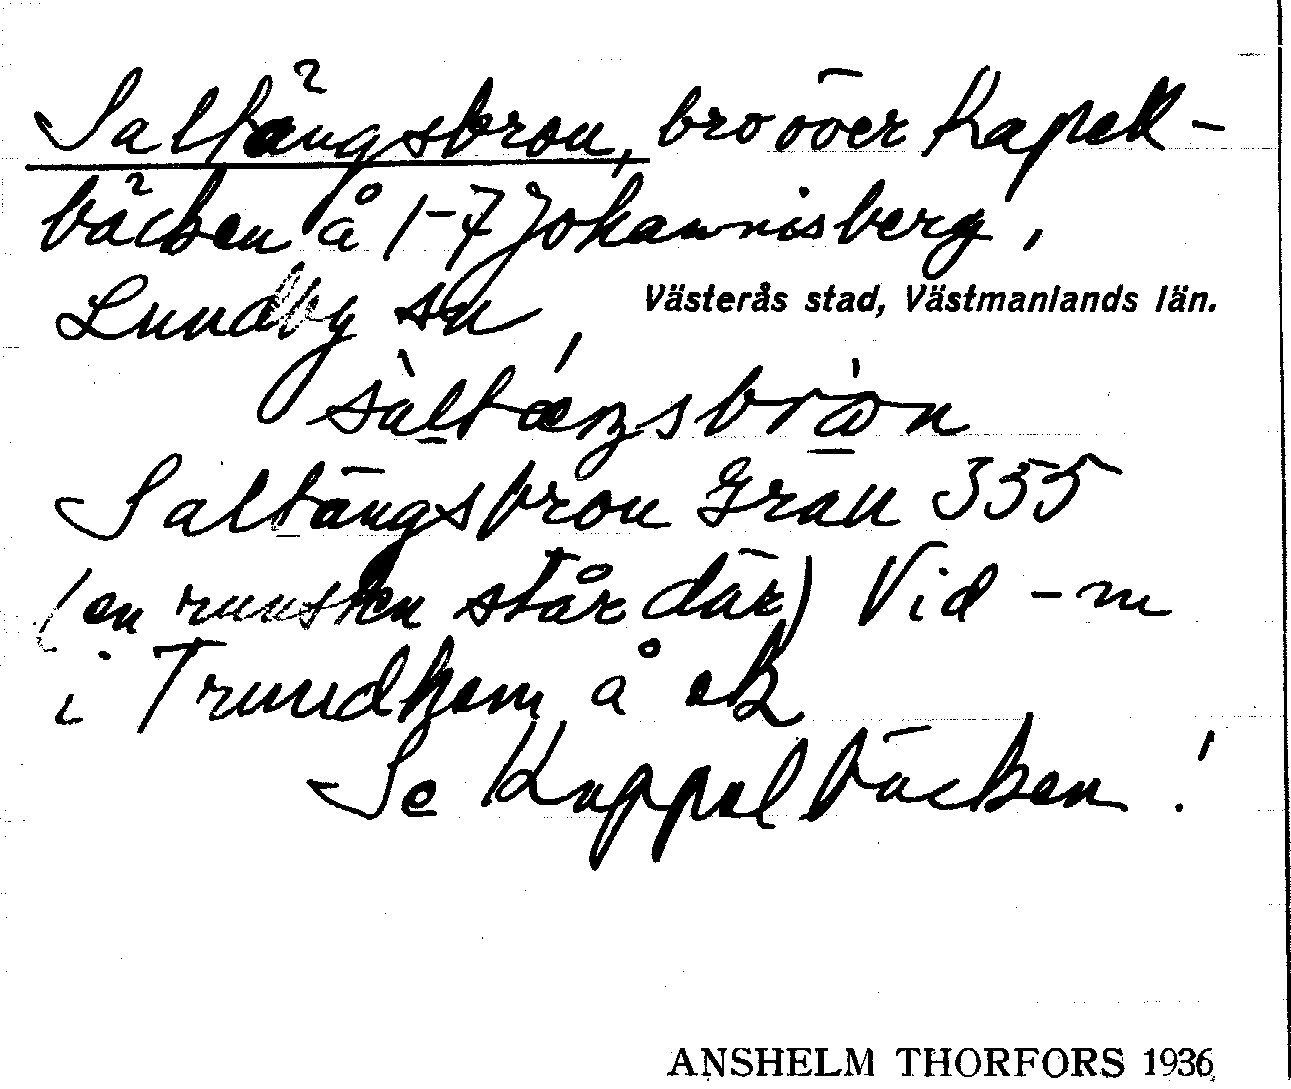 Saltängsbron, bro över Kapell-
bäcken å 1-7 Johannisberg,
Lundby sn, Västerås stad, Västmanlands län.
sàltæŋsbrón
Saltängsbron Gran 355
(en runsten står där) Vid -m
i Trundkem å ek
Se Kappelbäcken!
ANSHELM THORFORS 1936